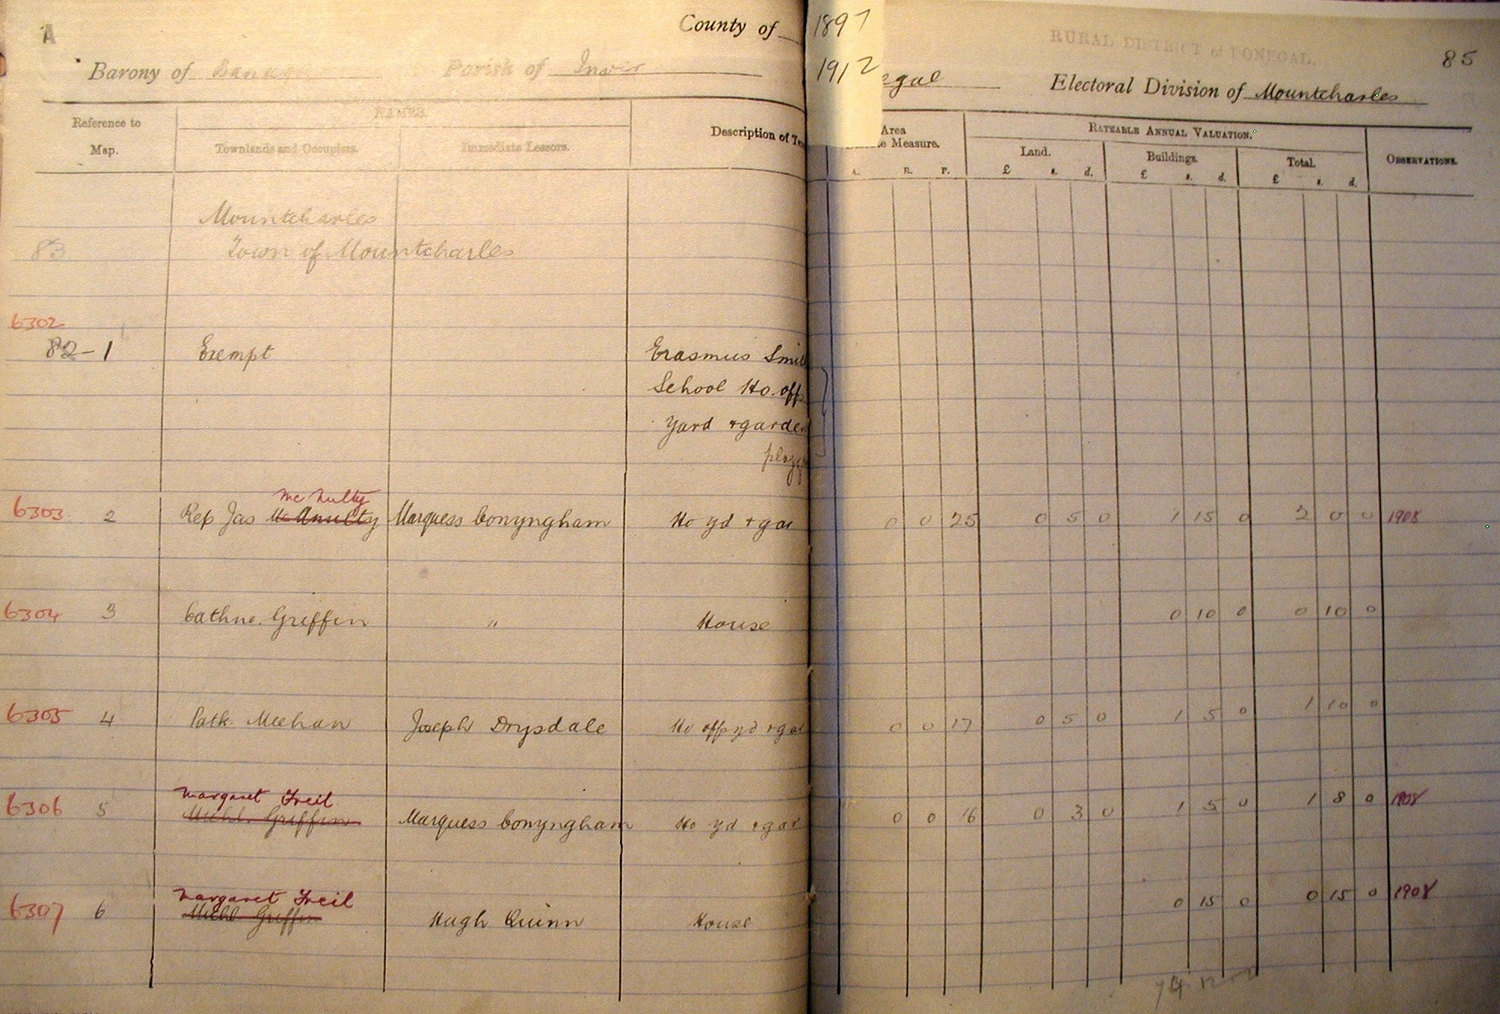 A
County of
1897
1912
egal
RURAL DISTRICT of DONEGAL.
85
Barony of
Parish of Inver
Electoral Division of Mountcharles
Reference to Map.
NAMES.
Townlands and Occupiers.
Immediate Lessors.
Description of Te
Area
e Measure.
A. R. P.
RATEABLE ANNUAL VALUATION.
Land.
£ s. d.
Buildings.
£ s. d.
Total.
£ s. d.
OBSERVATIONS.
Mountcharles
83 Town of Mountcharles
6302
82-1 Exempt Erasmus Smi
School Ho. off
yard + garde
play
Mc Nulty
6303 2 Rep Jas McAnulty Marquess Conyngham Ho yd + gar 0 0 25 0 5 0 1 15 0 2 0 0 1908
6304 3 Cathne. Griffin " House 0 10 0 0 10 0
6305 4 Patk. Meehan Joseph Drysdale Ho off yd + gar 0 0 17 0 5 0 1 5 0 1 10 0
Margaret Freil
6306 5 Michl. Griffin Marquess Conyngham Ho yd + gar 0 0 16 0 3 0 1 5 0 1 8 0 1908
Margaret Freil
6307 6 Michl Griffin Hugh Quinn House 0 15 0 0 15 0 1908